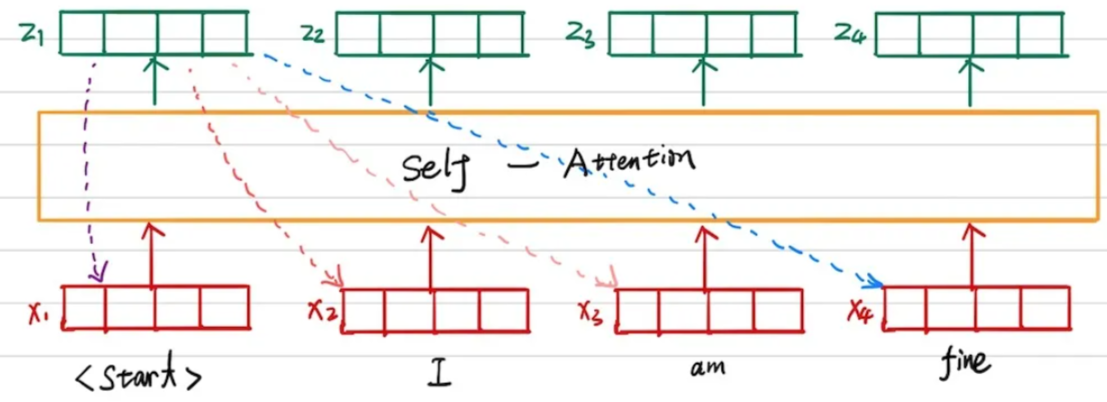 z1 z2 z3 z4
Self - Attention
x1 x2 x3 x4
<Start> I am fine